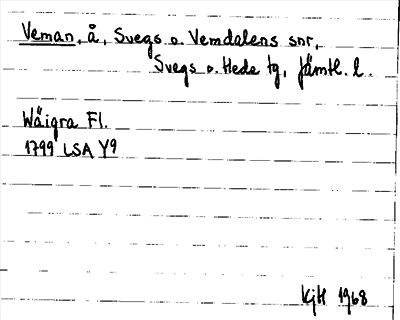 Veman, å, Svegs o. Vemdalens snr,
Svegs o. Hede tg, Jämtl. l.
Wäigra Fl.
1799 LSA Y9
KjH 1968